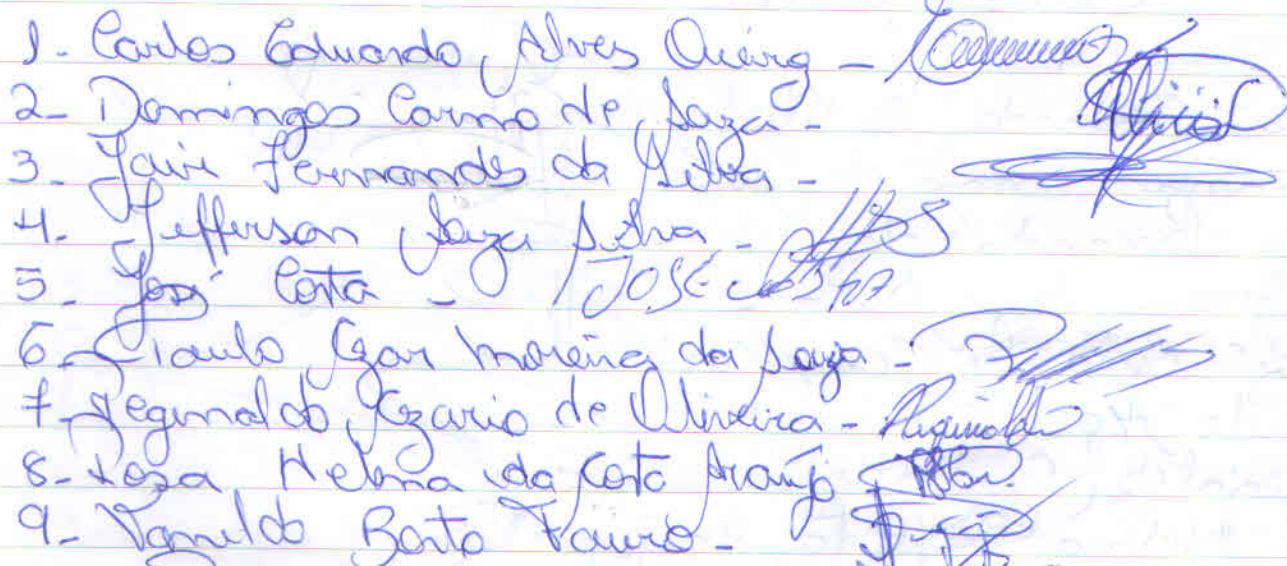 1- Carlos Eduardo Alves -
2- Domingos Carmo de Souza -
3- Jair Fernandes da Silva -
4- Jefferson Souza Silva -
5- José Costa - JOSÉ COSTA
6- Paulo Cezar Moreira da Souza -
7- Reginaldo Rozario de Oliveira - Reginaldo
8- Roza Helena da Costa Araújo -
9- Vanildo